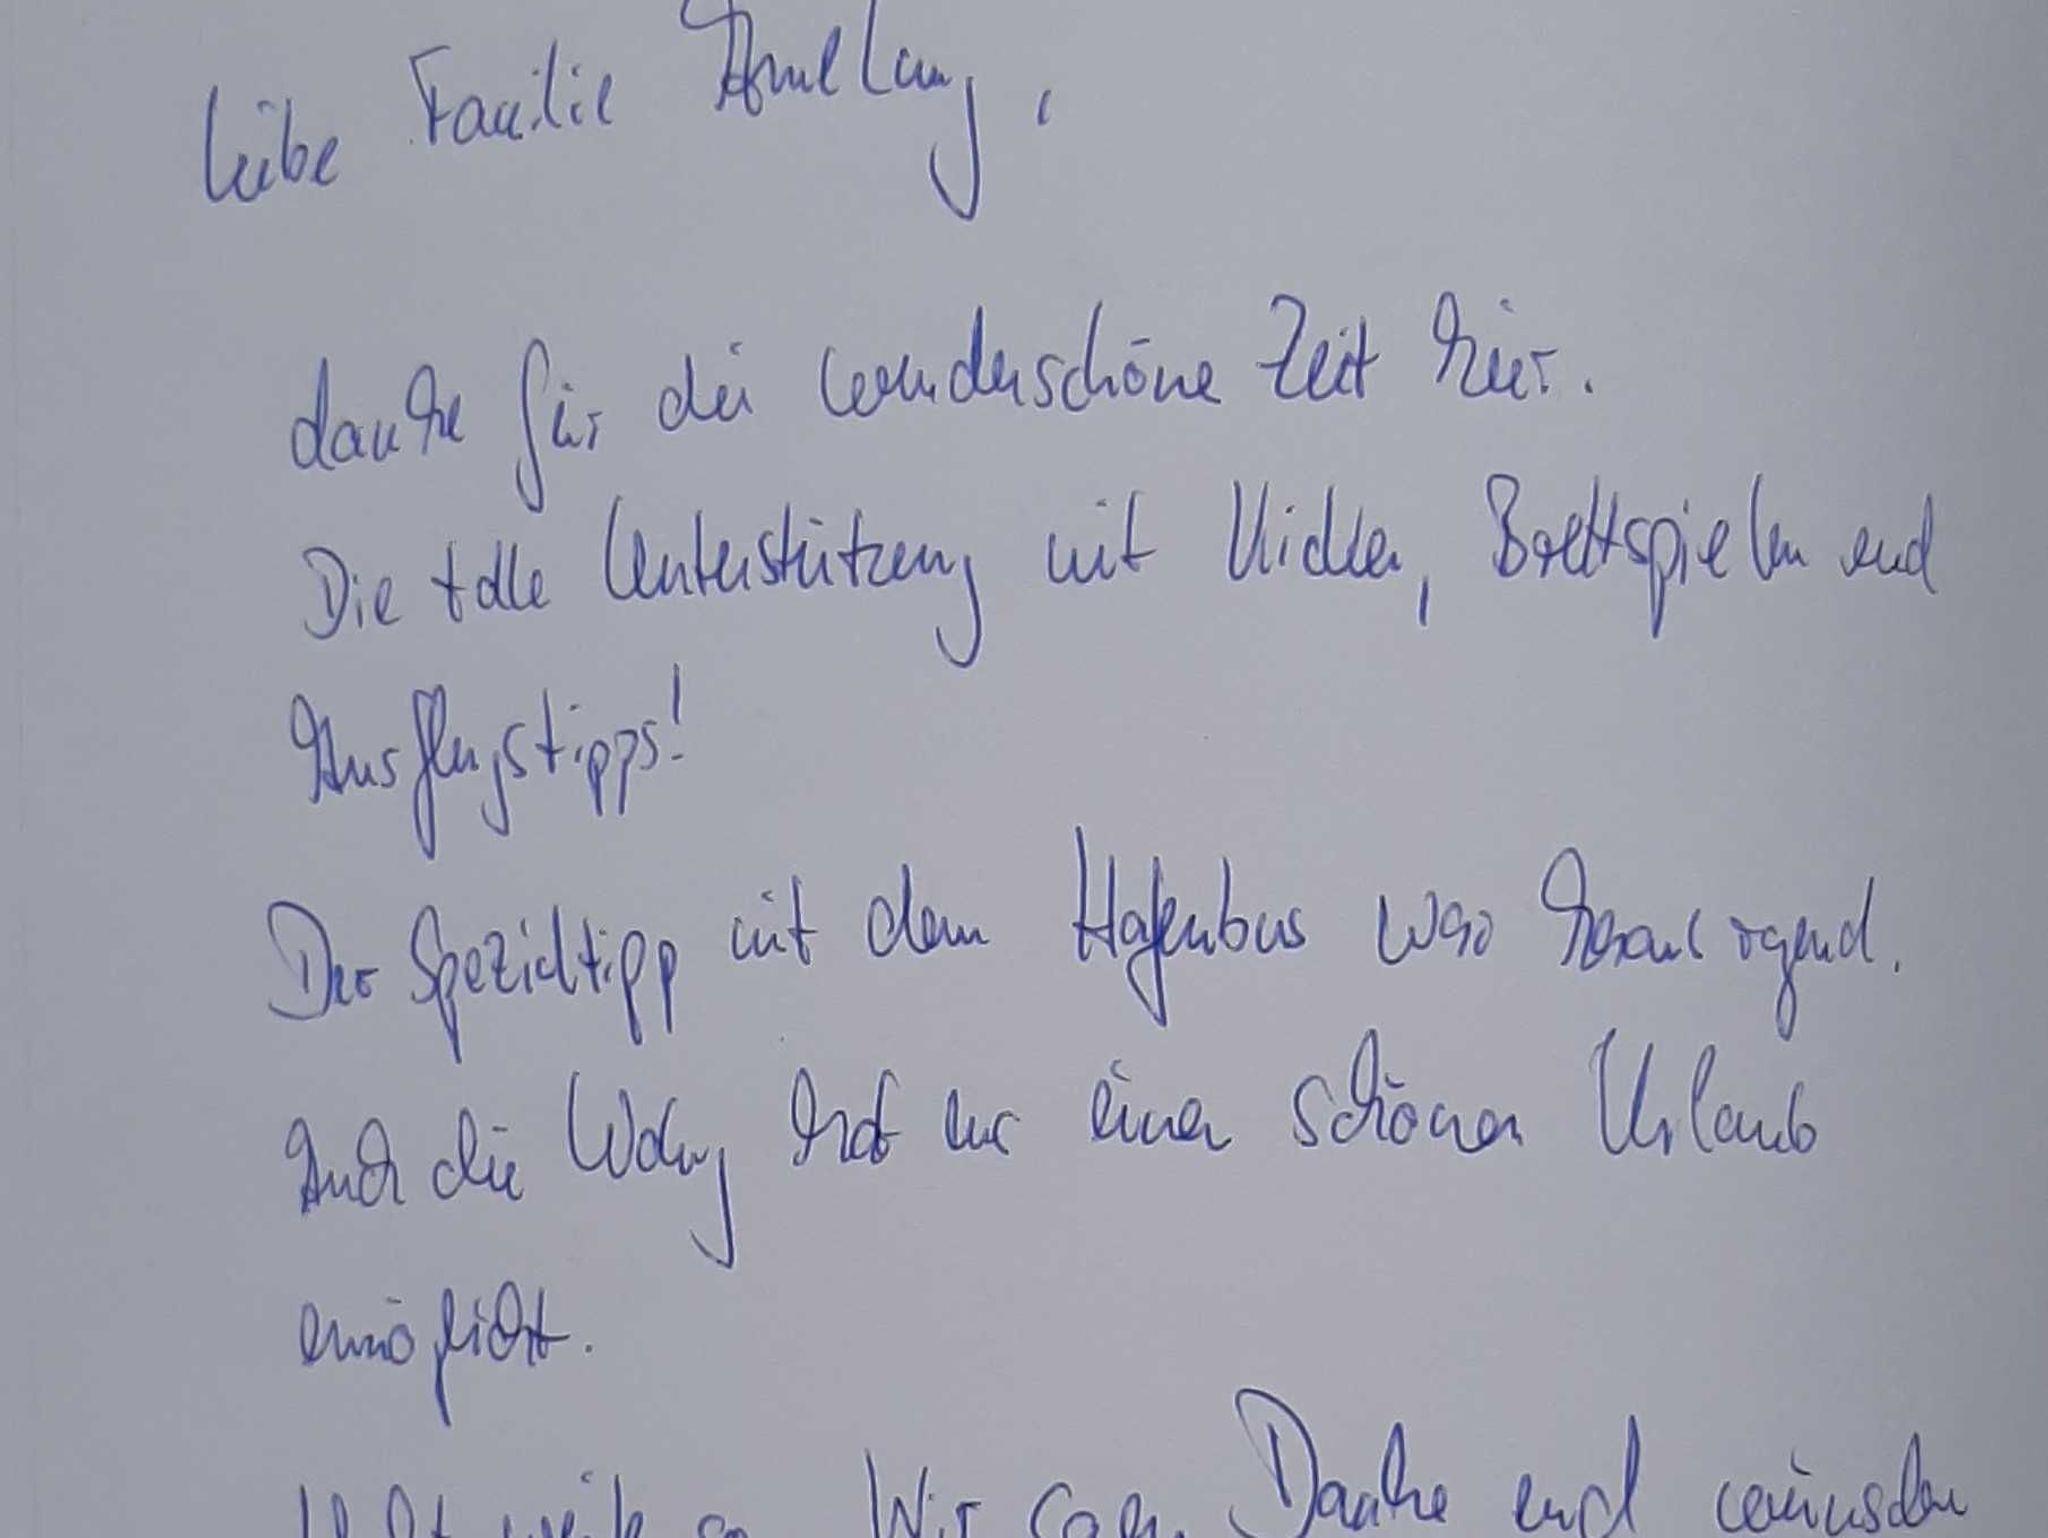 Liebe Familie Amelung,
danke für die wunderschöne Zeit hier.
Die tolle Unterstützung mit Kicker, Brettspielen und
Ausflugstipps!
Der Spezialtipp mit dem Hafenbus war herausragend.
Auch die Wohng hat uns einen schönen Urlaub
ermöglicht.
weiter so. Wir sagen Danke und wünschen